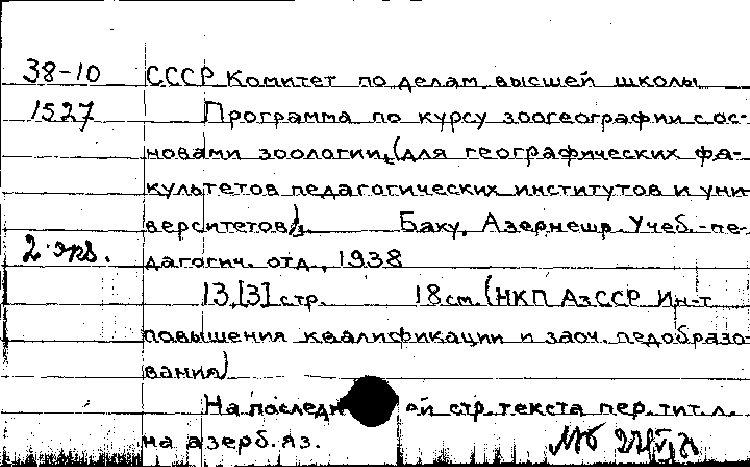 38-10 СССР Комитет по делам высшей школы
1527 Программа по курсу зоогеографии с ос-
новами зоологии, (для географических фа-
культетов педагогических институтов и уни-
верситетов). Баку, Азернешр. Учеб.-пе-
2 экз. дагогич. отд., 1938
13,[3] стр. 18 см. (НКП АзССР Ин-т
повышения квалификации и заоч. педобразо-
вания)
На последн ей стр. текста пер. тит. л.
на азерб. яз.